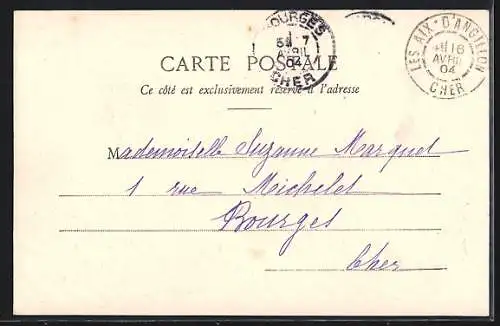 BOURGES
7
AVRIL
04
CHER
LES AIX-D'ANGILLON
16
AVRIL
04
CHER
CARTE POSTALE
Ce côté est exclusivement réservé à l'adresse
Mademoiselle Suzanne Marquet
1 rue Michelet
Bourges
Cher